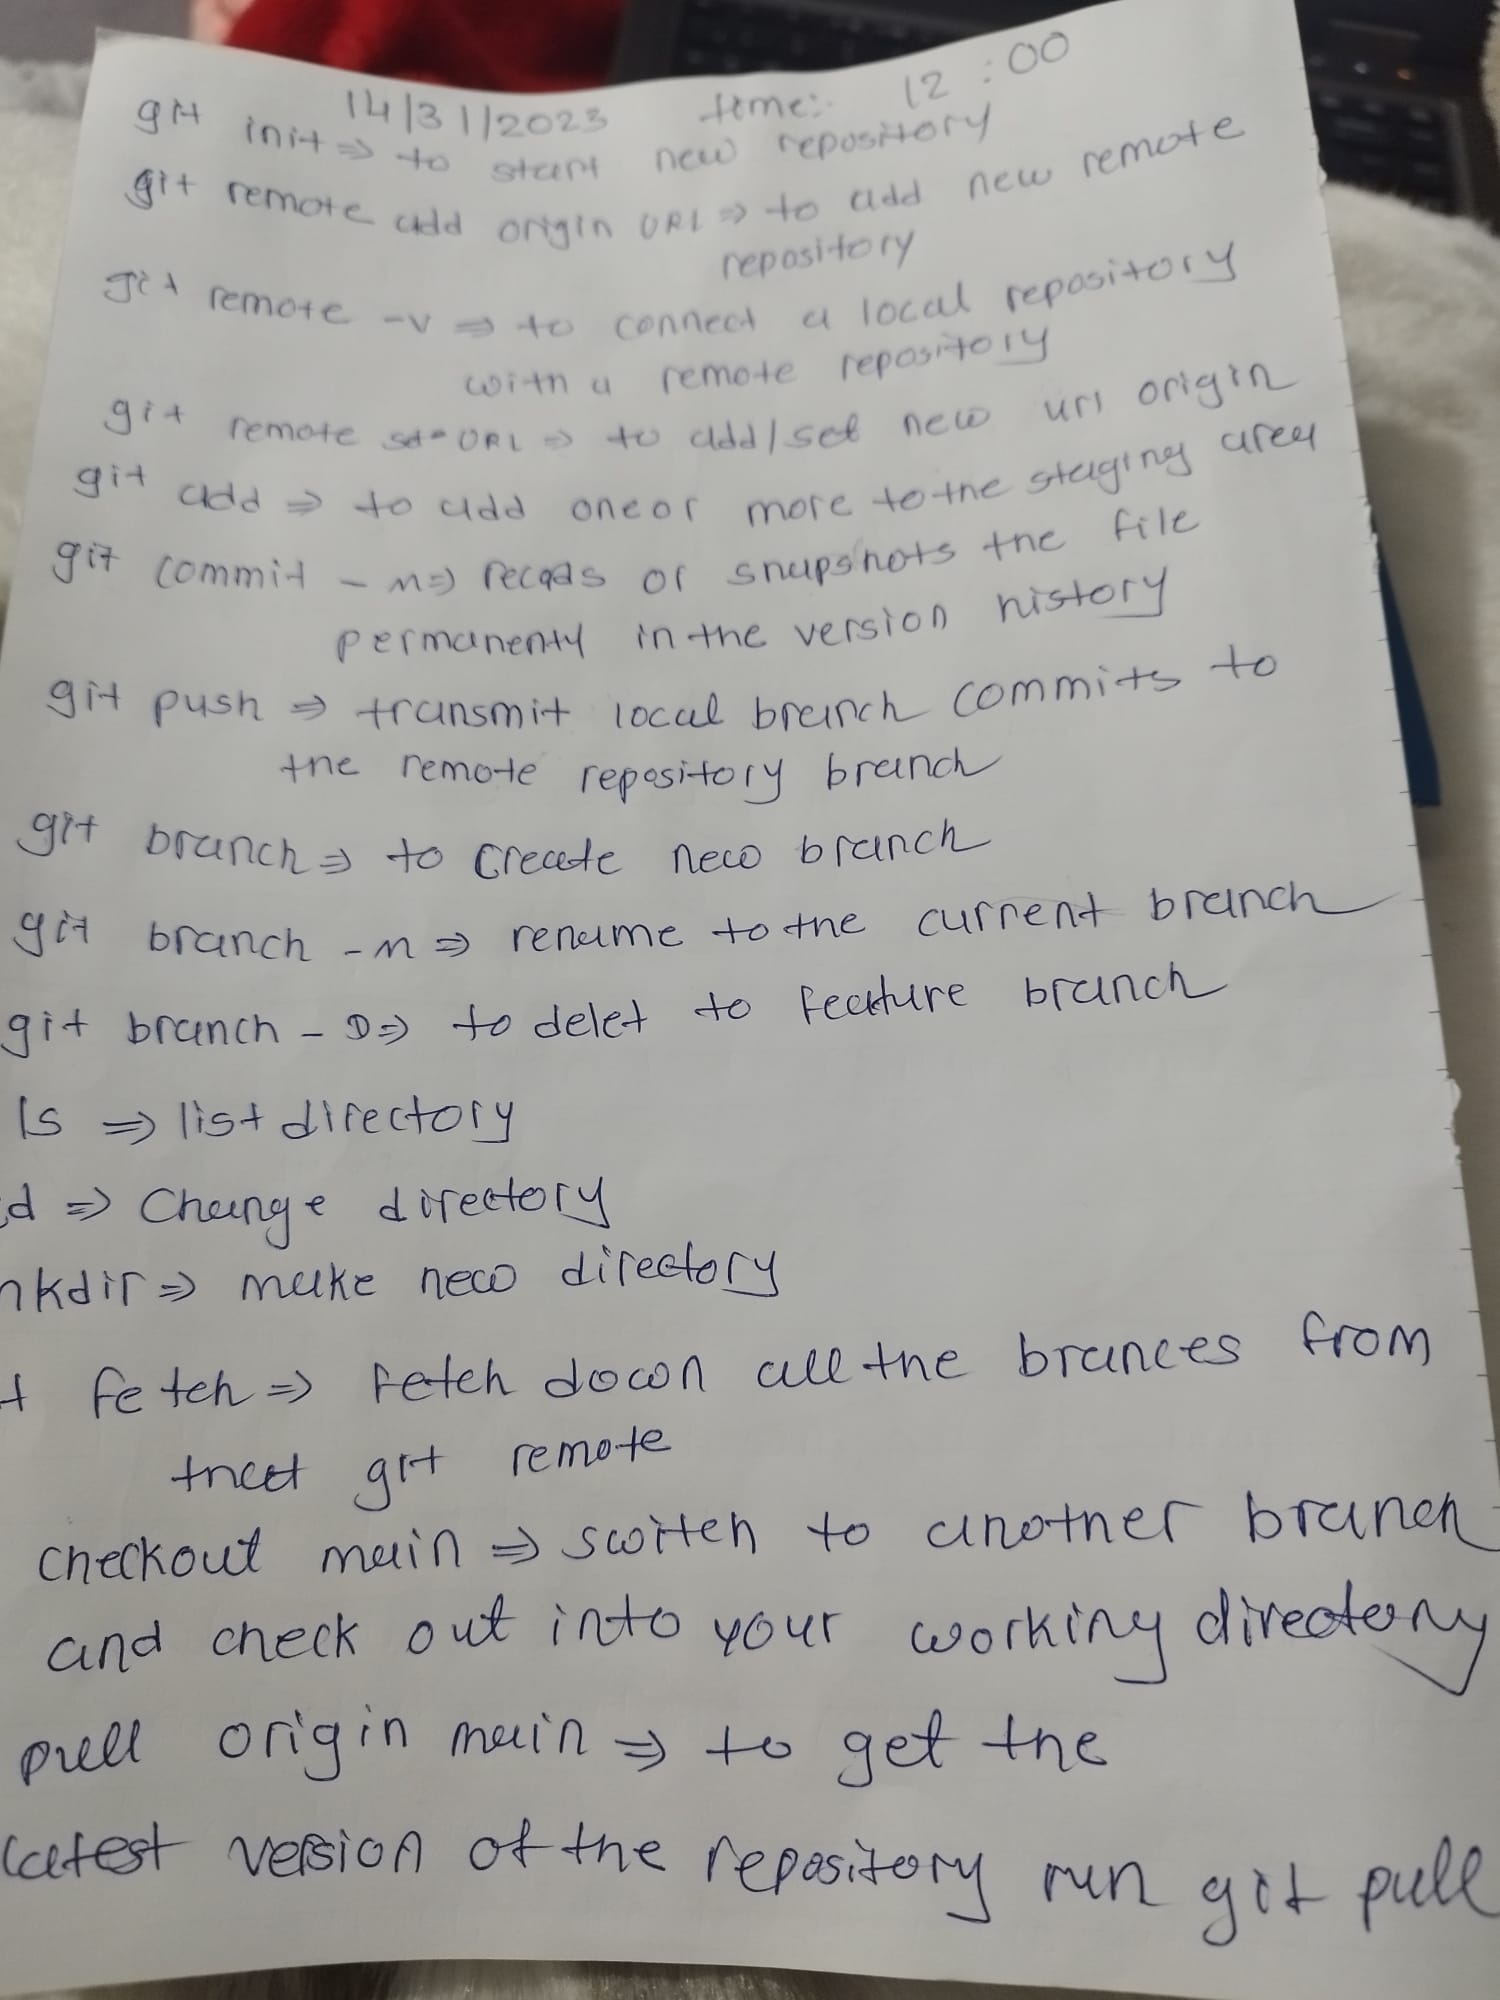 14/31/2023 time:- 12:00
git init => to start new repository
git remote add origin URL => to add new remote
repository
git remote -v => to connect a local repository
with a remote repository
git remote set-URL => to add/set new url origin
git add => to add one or more to the staging area
git commit -m => recods or snapshots the file
permanenty in the version history
git push => transmit local branch commits to
the remote repository branch
git branch => to create new branch
git branch -m => rename to the current branch
git branch -D => to delet to feature branch
ls => list directory
cd => Change directory
mkdir => make new directory
t fetch => fetch down all the brances from
that git remote
checkout main => switch to another branch
and check out into your working directory
pull origin main => to get the
latest version of the repository run git pull